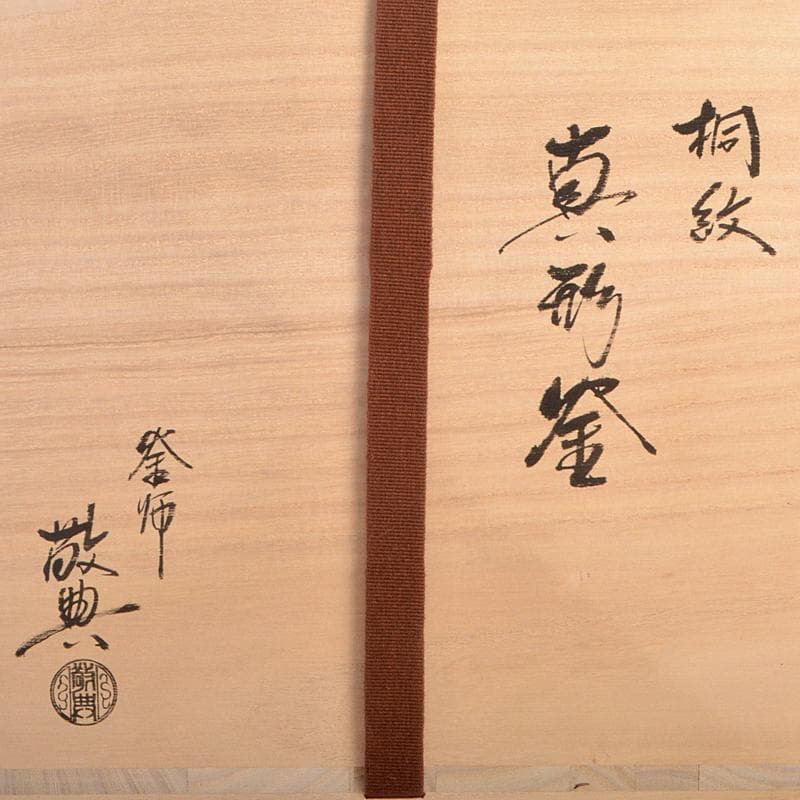 桐紋
真形釜
釜師
敬典
敬典